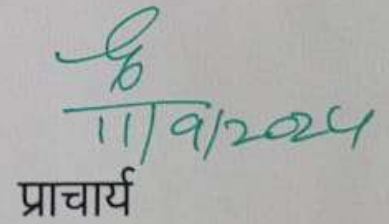 11/9/2024
प्राचार्य